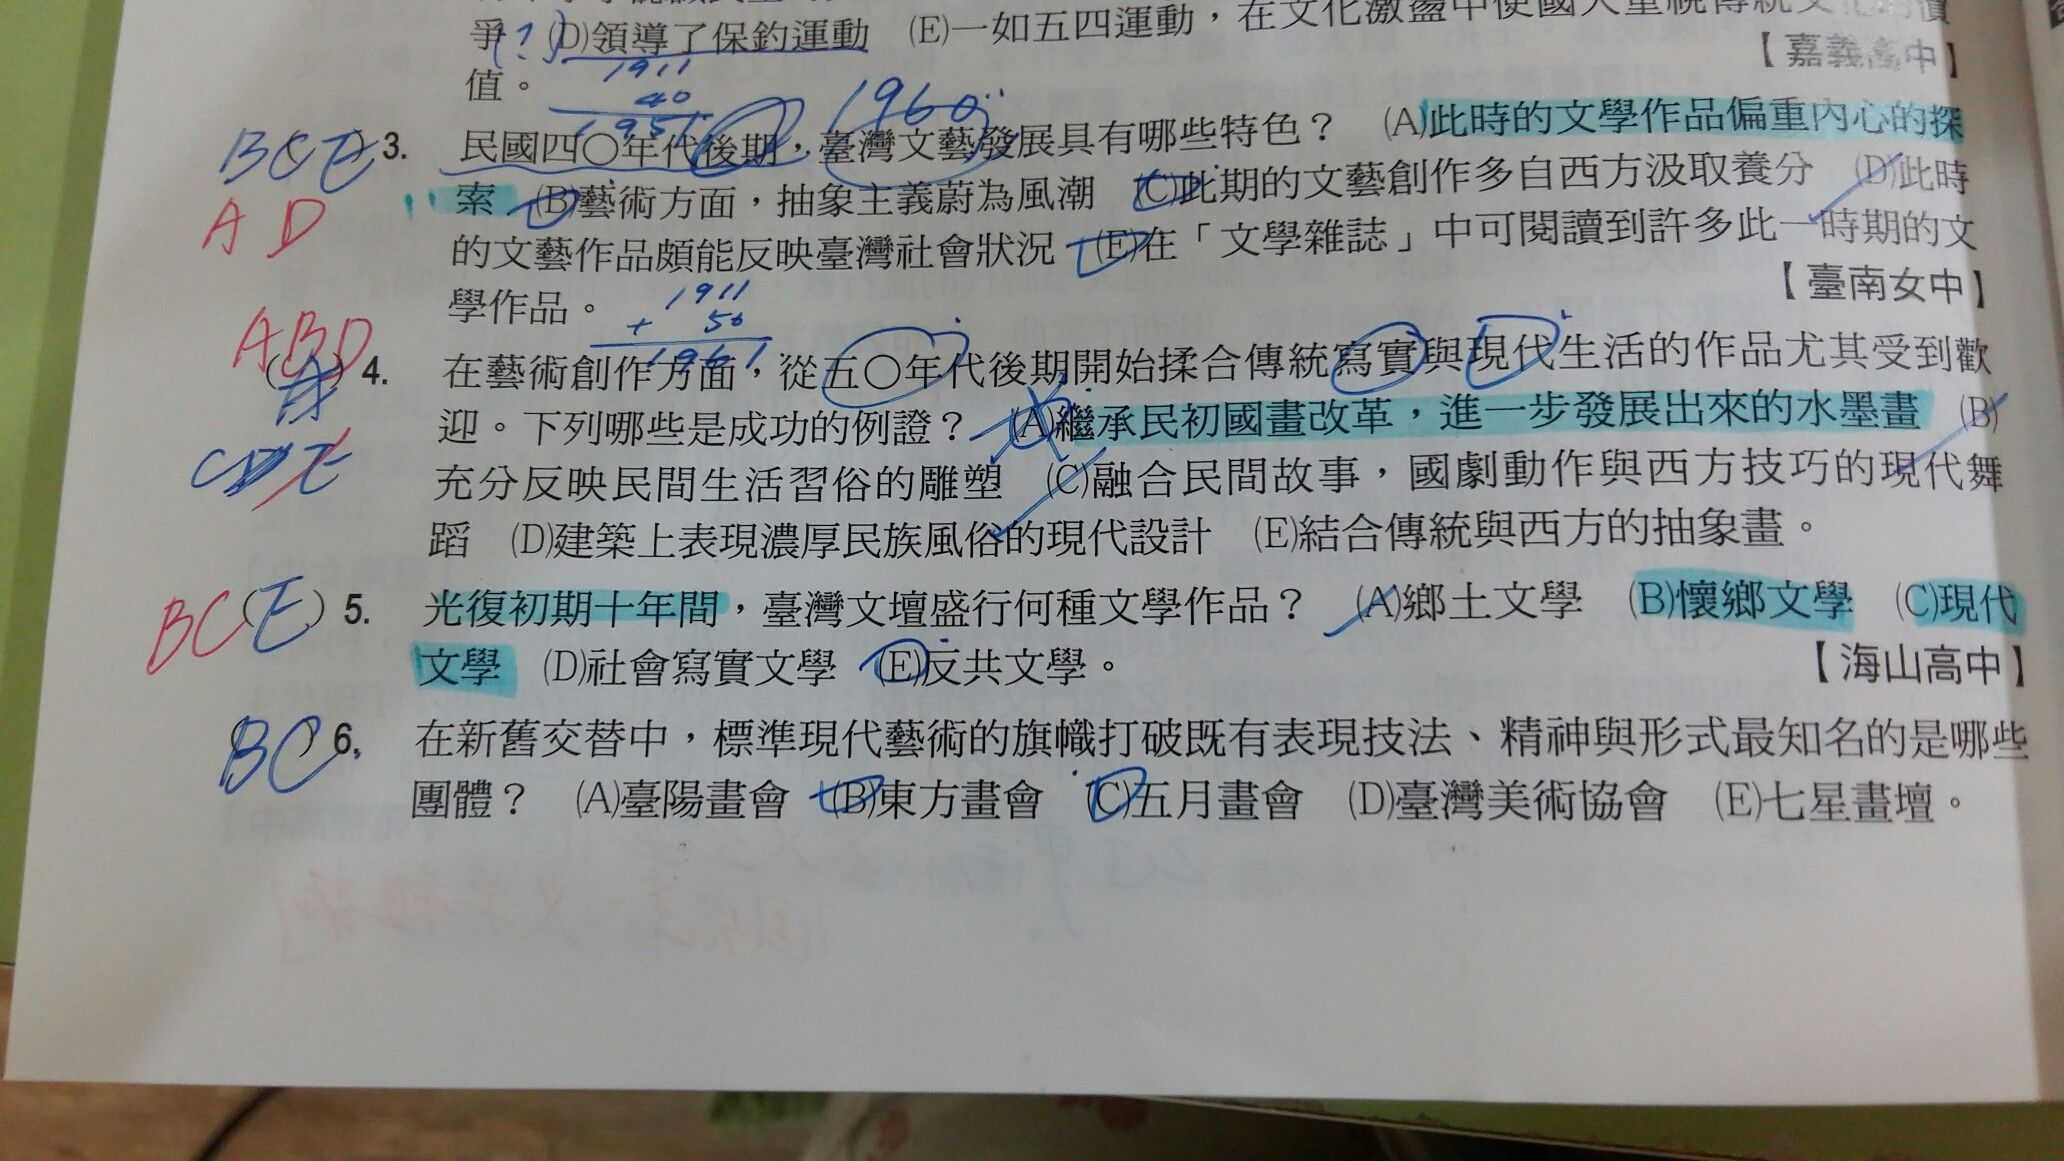 爭(?)(D)領導了保釣運動 (E)一如五四運動，在文化激盪中使國人重視傳統文化的價
值。
【嘉義高中】
1911
40
1951
1960
BCE 3. 民國四○年代後期，臺灣文藝發展具有哪些特色？ (A)此時的文學作品偏重內心的探
AD
索 (B)藝術方面，抽象主義蔚為風潮 (C)此期的文藝創作多自西方汲取養分 (D)此時
的文藝作品頗能反映臺灣社會狀況 (E)在「文學雜誌」中可閱讀到許多此一時期的文
學作品。
【臺南女中】
1911
+ 50
1961
ABD
(A) 4. 在藝術創作方面，從五○年代後期開始揉合傳統寫實與現代生活的作品尤其受到歡
迎。下列哪些是成功的例證？ (A)繼承民初國畫改革，進一步發展出來的水墨畫 (B)
CDE
充分反映民間生活習俗的雕塑 (C)融合民間故事，國劇動作與西方技巧的現代舞
蹈 (D)建築上表現濃厚民族風俗的現代設計 (E)結合傳統與西方的抽象畫。
BC(E) 5. 光復初期十年間，臺灣文壇盛行何種文學作品？ (A)鄉土文學 (B)懷鄉文學 (C)現代
文學 (D)社會寫實文學 (E)反共文學。
【海山高中】
BC 6. 在新舊交替中，標準現代藝術的旗幟打破既有表現技法、精神與形式最知名的是哪些
團體？ (A)臺陽畫會 (B)東方畫會 (C)五月畫會 (D)臺灣美術協會 (E)七星畫壇。